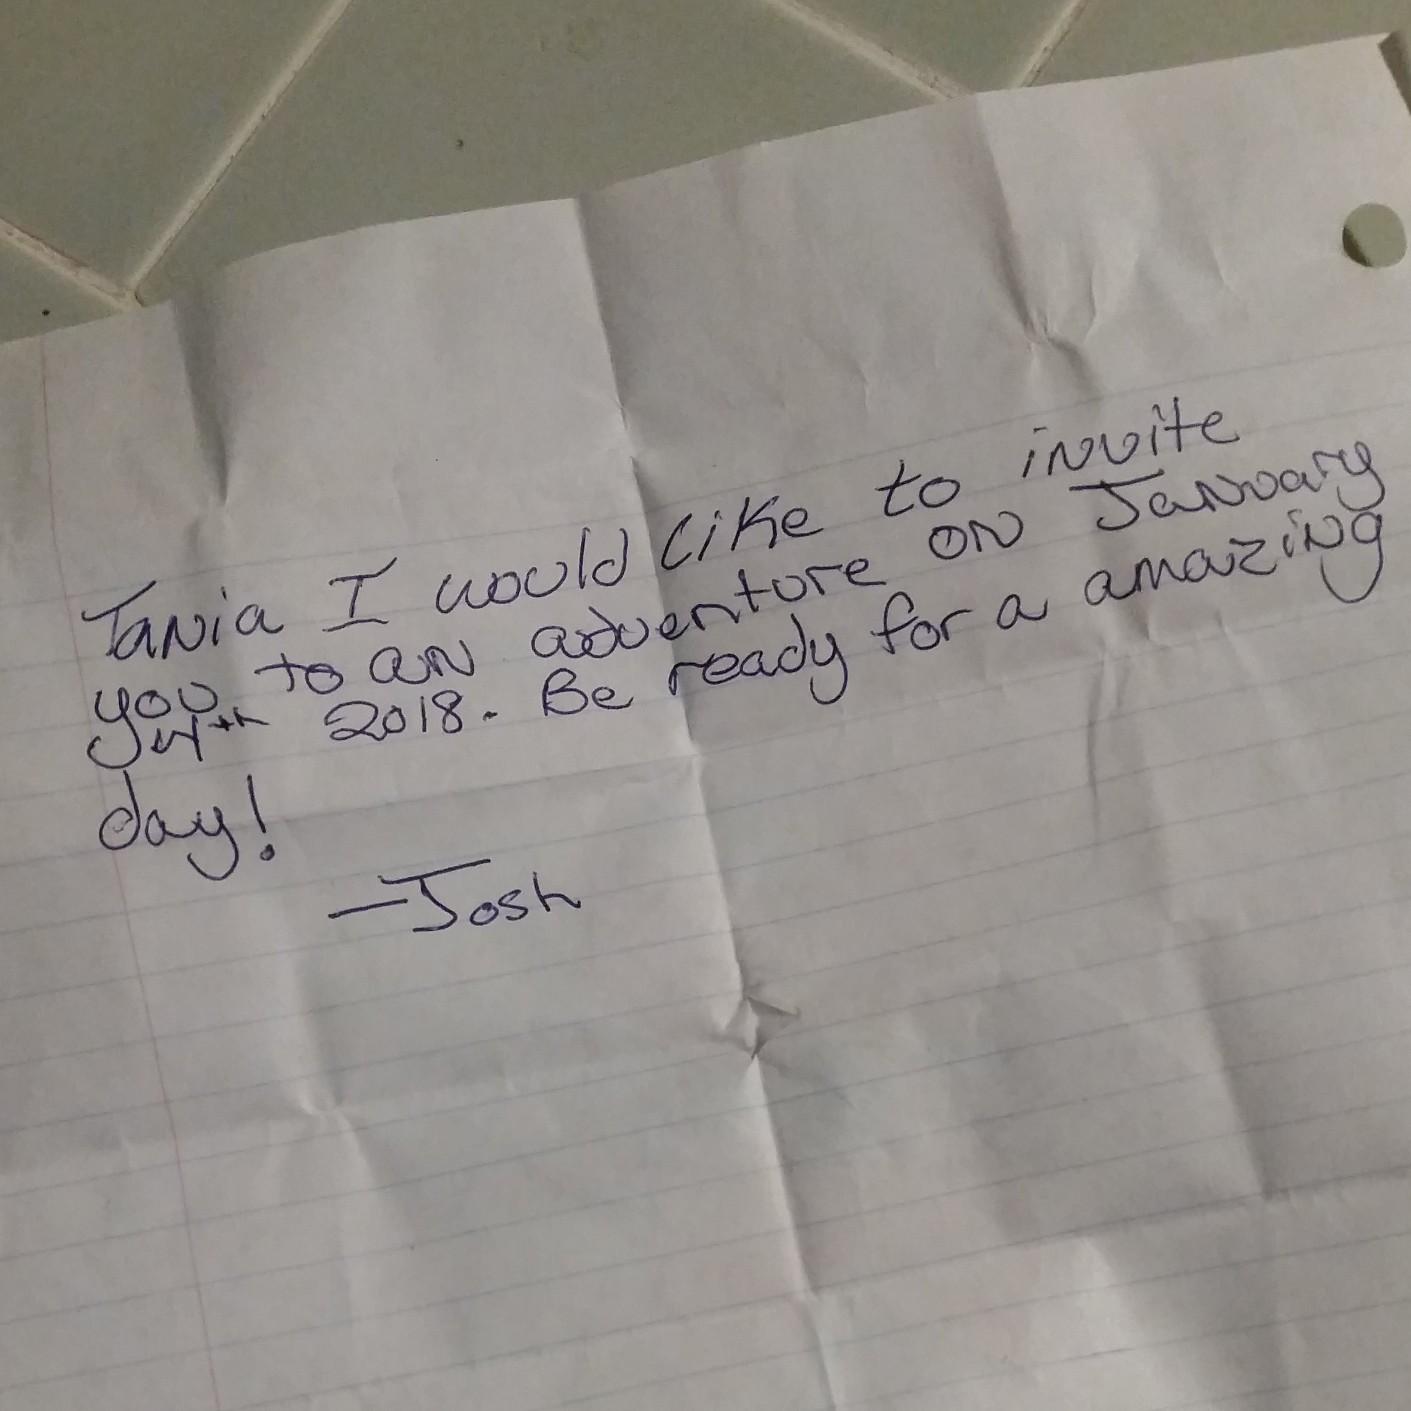 Tania I would like to invite
you to an adventure on January
4th 2018. Be ready for a amazing
day!
-Josh